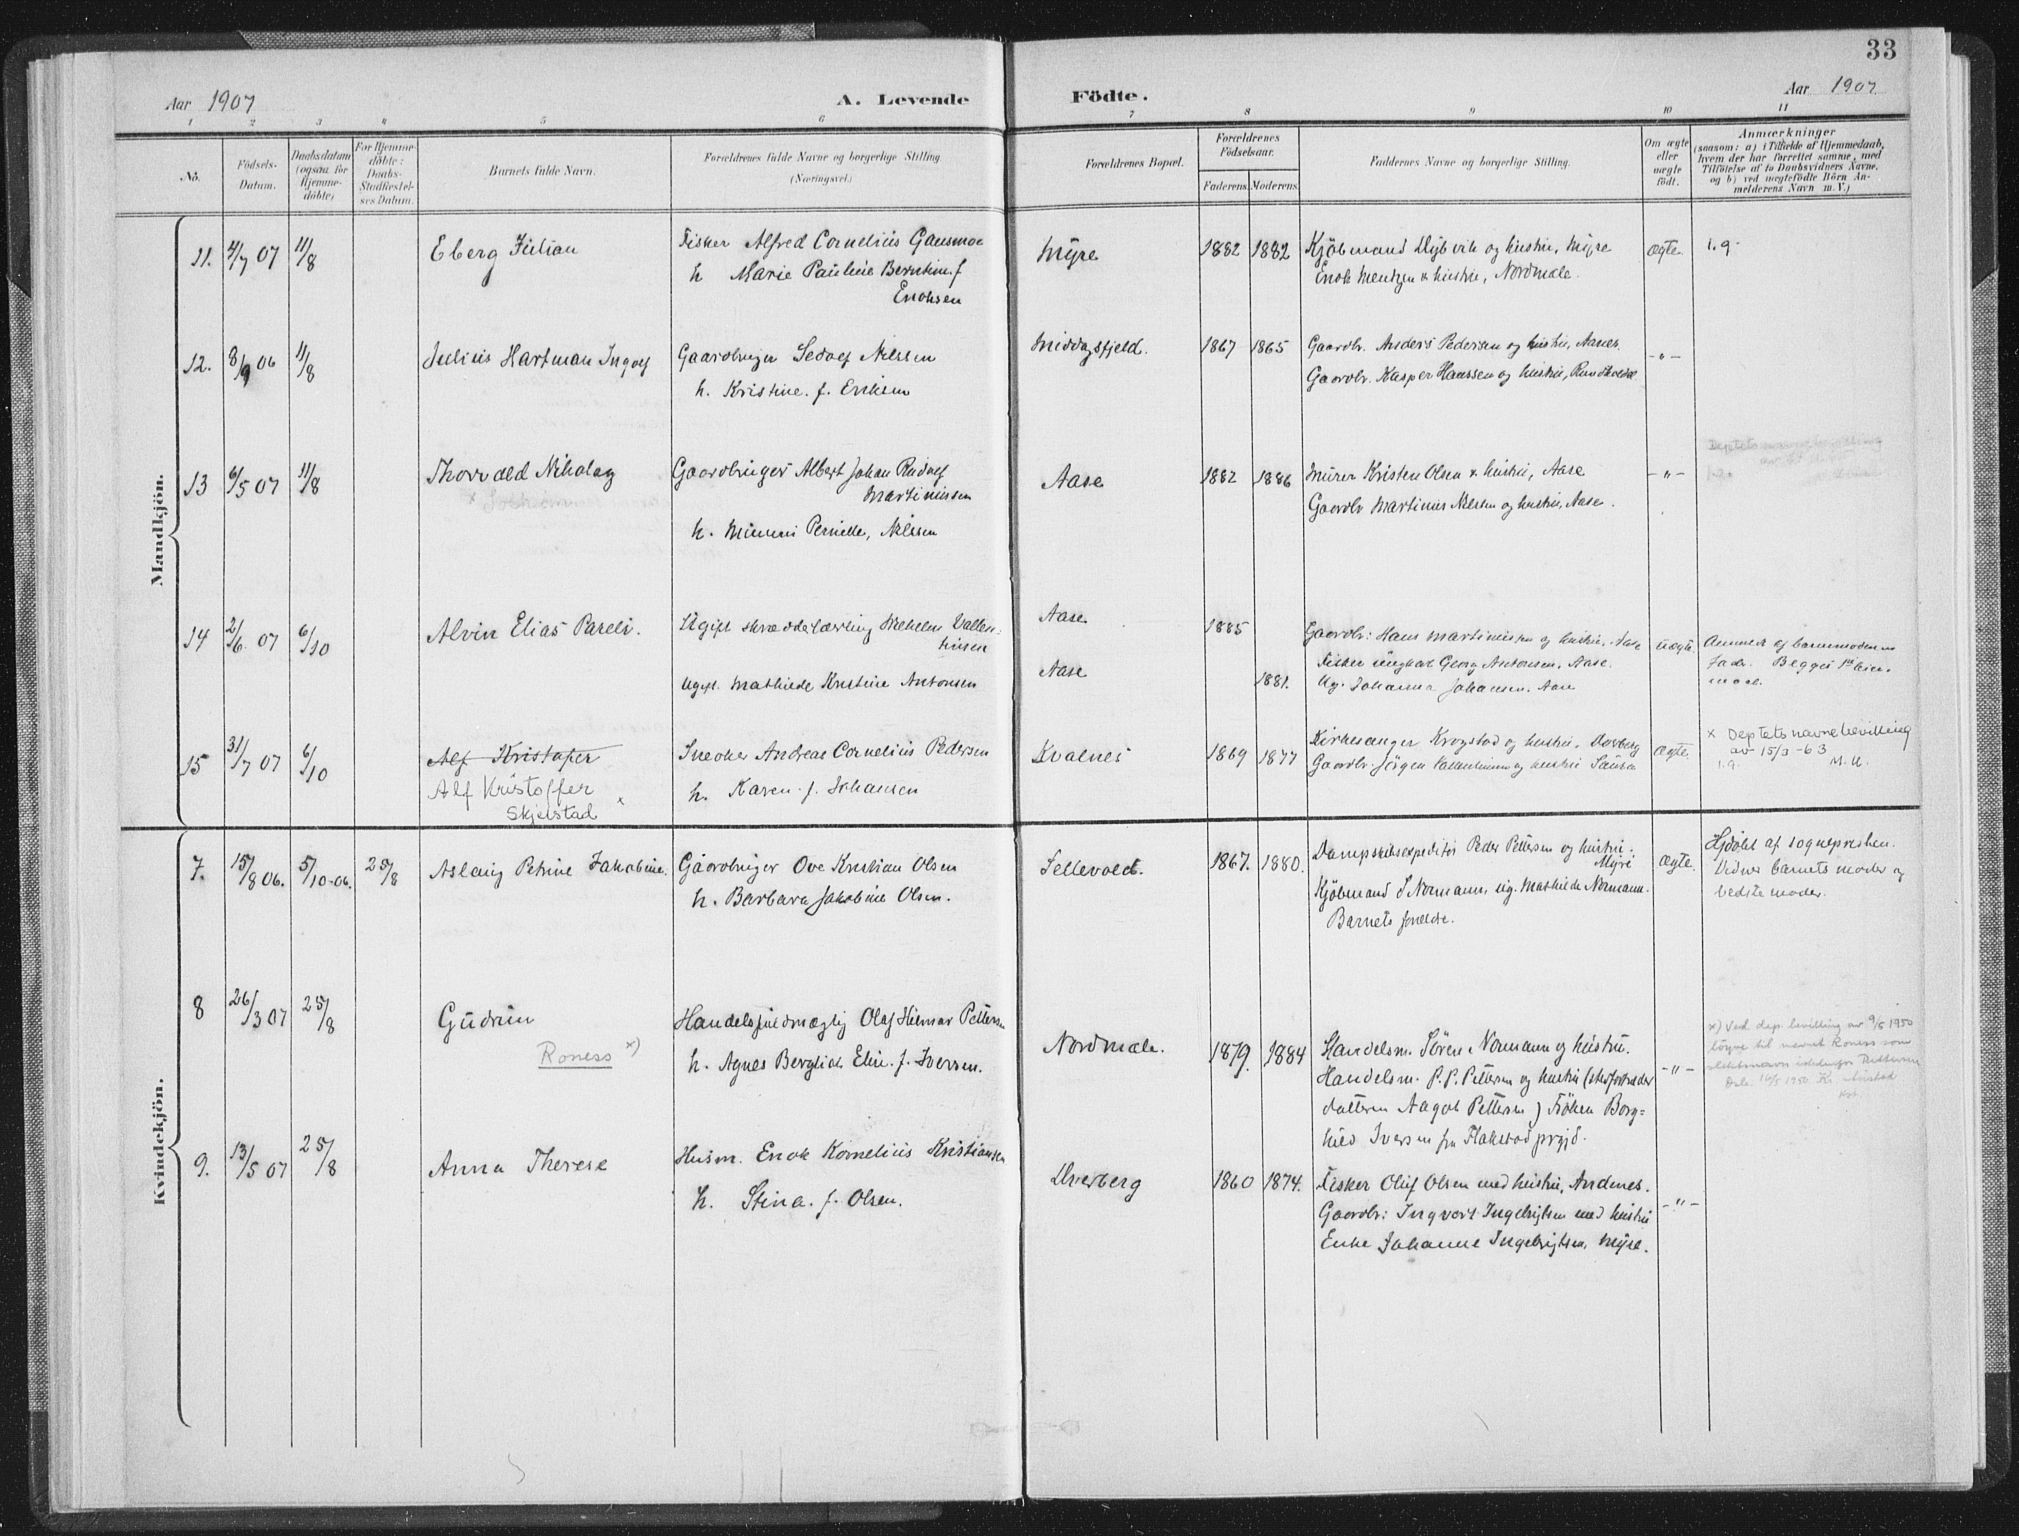 33
Aar 1907
A. Levende
Födte.
Aar 1907
1 2 3 4 5 6 7 8 9 10 11
No.
Födsels-
Datum.
Daabsdatum
(ogsaa for
Hjemme-
döbte)
For Hjemme-
döbte:
Daabs-
Stadfæstel-
ses Datum.
Barnets fulde Navn.
Forældrenes fulde Navne og borgerlige Stilling.
(Næringsvei.)
Forældrenes Bopæl.
Forældrenes
Födselsaar.
Faderens. Moderens.
Faddernes Navne og borgerlige Stilling.
Om ægte
eller
uægte
födt.
Anmærkninger
(saasom: a) i Tilfælde af Hjemmedaab,
hvem der har forrettet samme, med
Tilföielse af to Daabsvidners Navne,
og b) ved uægtefödte Börn An-
melderens Navn m. V.)
Mandkjön.
11. 4/7 07 11/8 Eberg Julian
Fisker Alfred Cornelius Gansmoe
h Marie Pauline Berntine f
Enoksen
Myre 1882 1882
Kjöbmand Dybvik og hustru, Myre
Enok Mentzen & hustru, Nordmæle.
ægte. 1.9.
12. 8/9 06 11/8 Julius Hartman Ingolf
Gaardbruger Sedolf Nilssen
h. Kristine. f. Eriksen
Middagsfjeld. 1867 1865
Gaardbr. Anders Pedersen og hustru, Aanes.
Gaardbr. Kasper Hanssen og hustru,
-"-
13 6/5 07 11/8 Thorvald Nikolay
Gaardbruger Albert Johan Rudolf
Martinussen
h. Minni Pernille, Nilssen
Aase 1882 1886
Murer Kristen Olsen & hustru, Aase
Gaardbr Martinus Nilsen og hustru, Aase.
-"-
Deptets navnebevilling
14 2/6 07 6/10 Alvin Elias Pareli.
Ugift skrædderlærling Vilhelm Vallen-
tinsen
Ugift. Mathilde Kristine Antonsen
Aase 1885
Aase 1881.
Gaardbr: Hans Martinussen og hustru, Aase
Fisker ungkar Georg Antonsen, Aase.
Ug. Johanna Johansen. Aase
uægte
Anmeldt af barnemoderens
fader. Begges 1ste leier-
maal.
15 31/7 07 6/10 Alf Kristofer
Alf Kristoffer
Skjelstad x
Snedker Andreas Cornelius Pedersen
h. Karen. f. Johansen
Kvalnes 1869 1877
Kirkesanger Krogstad og hustru, Dverberg
Gaardbr. Jörgen og hustru
ægte.
x Deptets navnebevilling
av 15/3-63
1.9. M.H.
Kvindekjön.
7. 15/8 06. 5/10-06. 25/8 Aslaug Petrine Jakobine.
Gaardbruger Ove Kristian Olsen
h. Barbara Jakobine Olsen.
Sellevold. 1867. 1880.
Dampskibsexpeditör Peder Pettersen og hustru.
Myre
Kjöbmand S Normann, ug. Mathilde Normann.
Barnets forældre.
ægte.
Hjdöbt af sognepresten.
Vidner barnets moder og
bedstemoder.
8 26/3 07 25/8 Gudrun
Roness x)
Handelsfuldmægtig Olaf Hilmar Pettersen
h. Agnes Bergliot Elin. f. Iversen.
Nordmæle. 1879. 1884
Handelsm. Sören Normann og hustru.
Handelsm. P. P. Pettersen og hustru (stedfortræder
datteren Aagot Pettersen) Fröken Borg-
hild Iversen fra Flakstad prgjd.
-"-
x) Ved dep. bevilling av 9/5 1950
til navnet Roness som
slektsnavn istedenfor Pettersen
9. 13/5 07 25/8 Anna Therese
Husm. Enok Kornelius Kristiansen
h. Stina. f. Olsen.
Dverberg 1860 1874.
Fisker Oluf Olsen med hustru, Andenes.
Gaardbr: Ingvart Ingebrigtsen med hustru
Enke Johanne Ingebrigtsen, Myre.
-"-